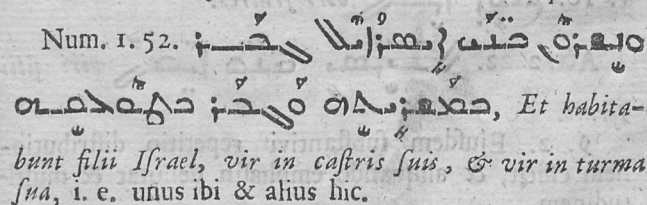 Num. 1. 52. ܘܢܫܪܘܢ ܒܢܝ̈ ܐܝܣܪܐܝܠ ܓܒܪ
ܒܡܫܪܝܬܗ ܘܓܒܪ ܒܛܟܣܗ, Et habita-
bunt filii Iſrael, vir in caſtris ſuis, & vir in turma
ſua, i. e. unus ibi & alius hic.